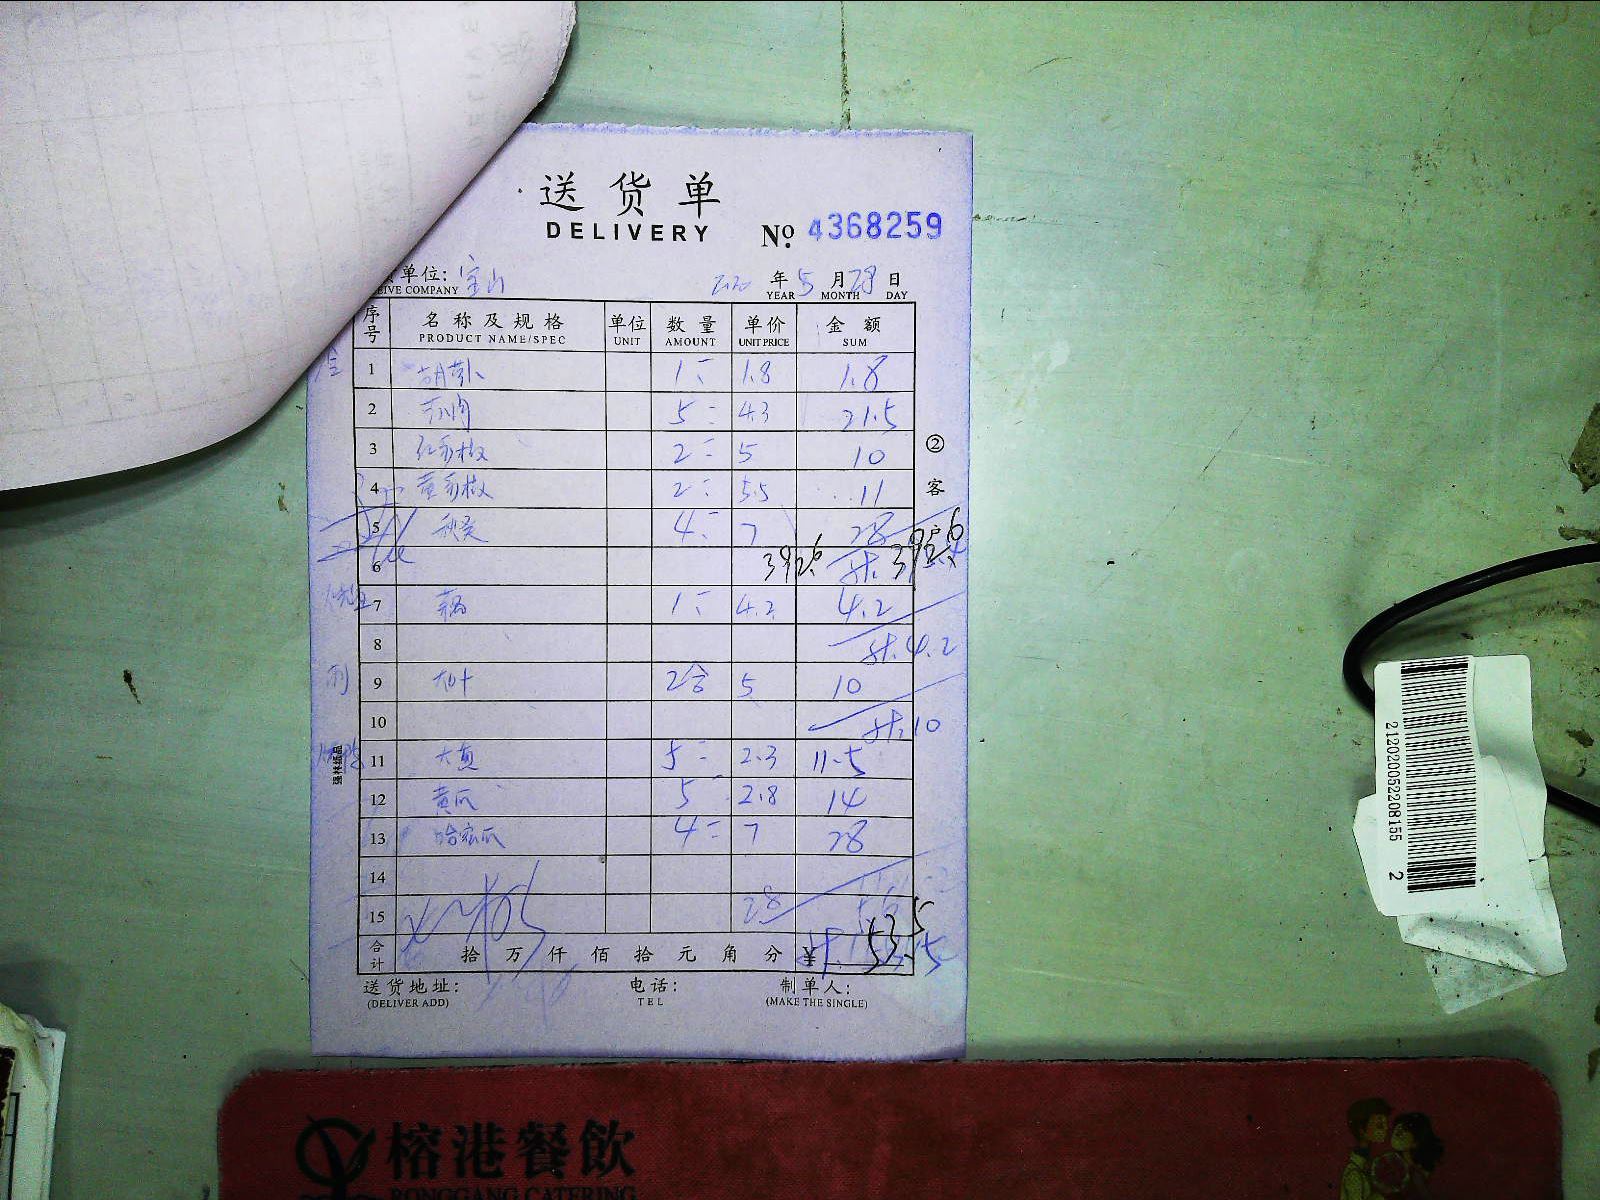 送货单
DELIVERY
No. 4368259
单位: 宝山 2020 年 5 月 28 日
EIVE COMPANY YEAR MONTH DAY
序号 名称及规格 单位 数量 单价 金额
PRODUCT NAME/SPEC UNIT AMOUNT UNIT PRICE SUM
1 胡萝卜 1 1.8 1.8
2 5 4.3 21.5
3 红彩椒 2 5 10
4 黄彩椒 2 5.5 11
5 秋葵 4 7 28
6 392.6
7 1 4.2 4.2
8 4.2
9 2合 5 10
10 10
11 5 2.3 11.5
12 黄瓜 5 2.8 14
13 哈密瓜 4 7 28
14
15 28
合计 拾 万 仟 佰 拾 元 角 分 ¥ 53.5
送货地址: 电话: 制单人:
(DELIVER ADD) TEL (MAKE THE SINGLE)
② 客户
强林纸品
212020052208155 2
榕港餐飲
RONGGANG CATERING